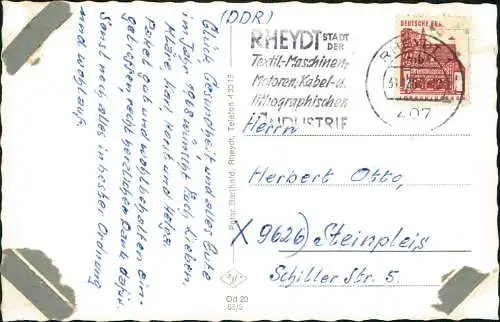 (DDR)
Glück, Gesundheit und alles Gute
im Jahr 1968 wünscht Euch Lieben.
Kläre, Karl, Horst und Helga.
Paket gut und wohlbehalten ein-
getroffen, recht herzlichen Dank dafür.
Sonst noch alles in bester Ordnung
und wohlauf.
Peter Barthold, Rheydt, Telefon 43013
RHEYDT STADT
DER
Textil-Maschinen-
Motoren, Kabel- u.
lithographischen
INDUSTRIE
DEUTSCHE BUN
RHEYDT
407
Herrn
Herbert Otto,
X 9626) Steinpleis
Schiller Str. 5.
Od 20